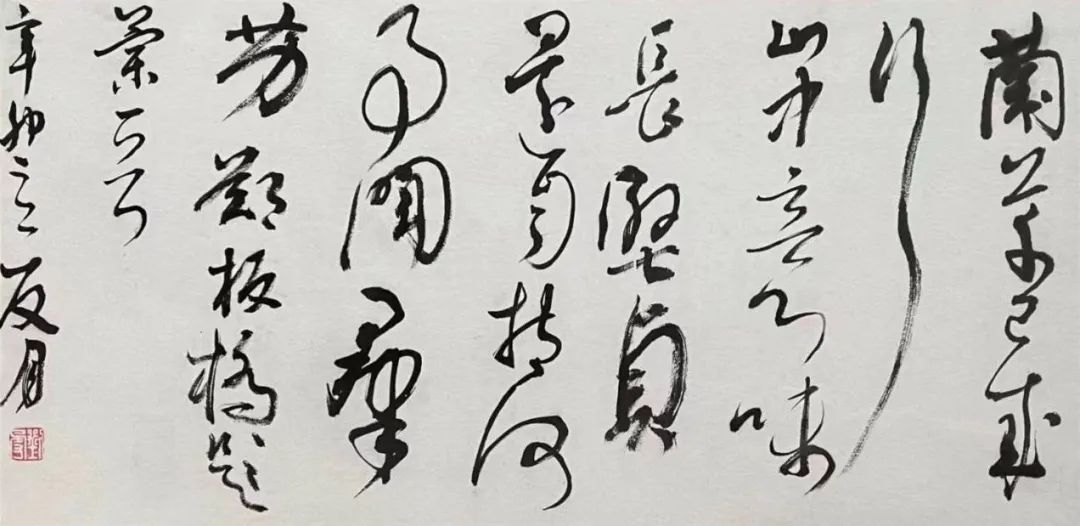 蘭草已成
行
山中意味
長堅貞
還自抱何
事鬥羣
芳鄭板橋題
蘭
辛卯之夏月